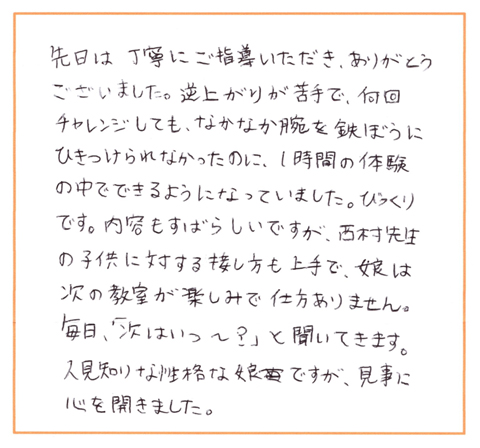 先日は丁寧にご指導いただき、ありがとう
ございました。逆上がりが苦手で、何回
チャレンジしても、なかなか腕を鉄ぼうに
ひきつけられなかったのに、1時間の体験
の中でできるようになっていました。びっくり
です。内容もすばらしいですが、西村先生
の子供に対する接し方も上手で、娘は
次の教室が楽しみで仕方ありません。
毎日、「次はいつ〜?」と聞いてきます。
人見知りな性格な娘ですが、見事に
心を開きました。